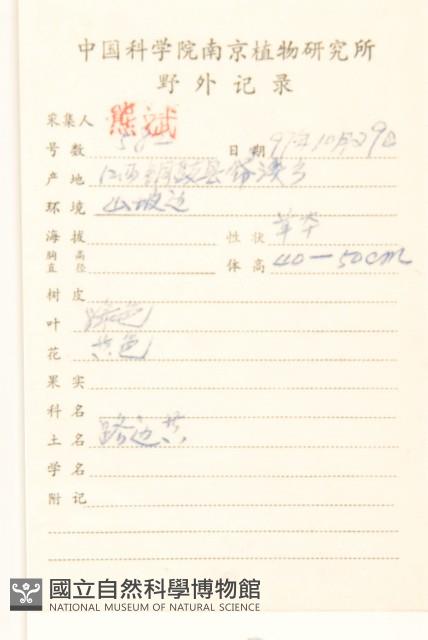 中国科学院南京植物研究所
野外记录
采集人 熊斌
号数 日期 97年10月29日
产地 江西铜鼓县
环境 山坡边
海拔 性状 草本
胸高直径 体高 40—50cm
树皮
叶 绿色
花 黄色
果实
科名
土名 路边黄
学名
附记
國立自然科學博物館
NATIONAL MUSEUM OF NATURAL SCIENCE